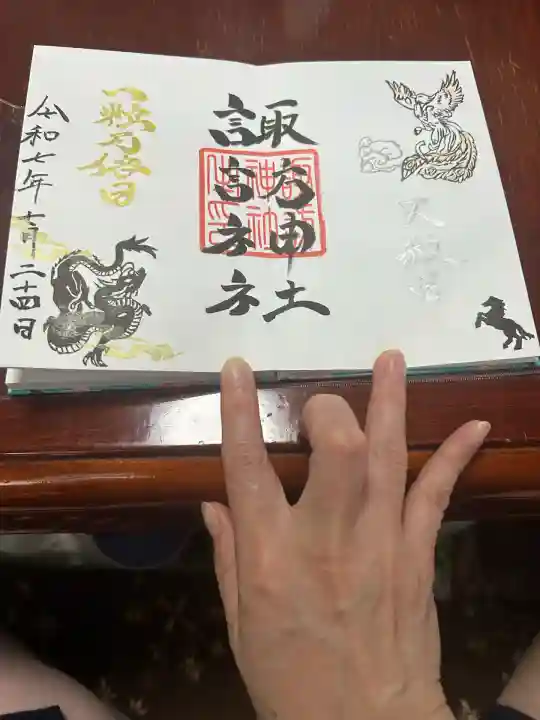 天赦日
諏訪神社
一粒万倍日
令和七年七月二十四日